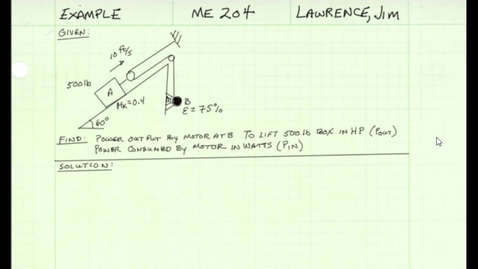 EXAMPLE ME 204 LAWRENCE, JIM
GIVEN:
10 ft/s
500 lb
A
B
Mk=0.4
E = 75%
60°
FIND: POWER OUTPUT BY MOTOR AT B TO LIFT 500 LB BOX IN HP (POUT)
POWER CONSUMED BY MOTOR IN WATTS (PIN)
SOLUTION: